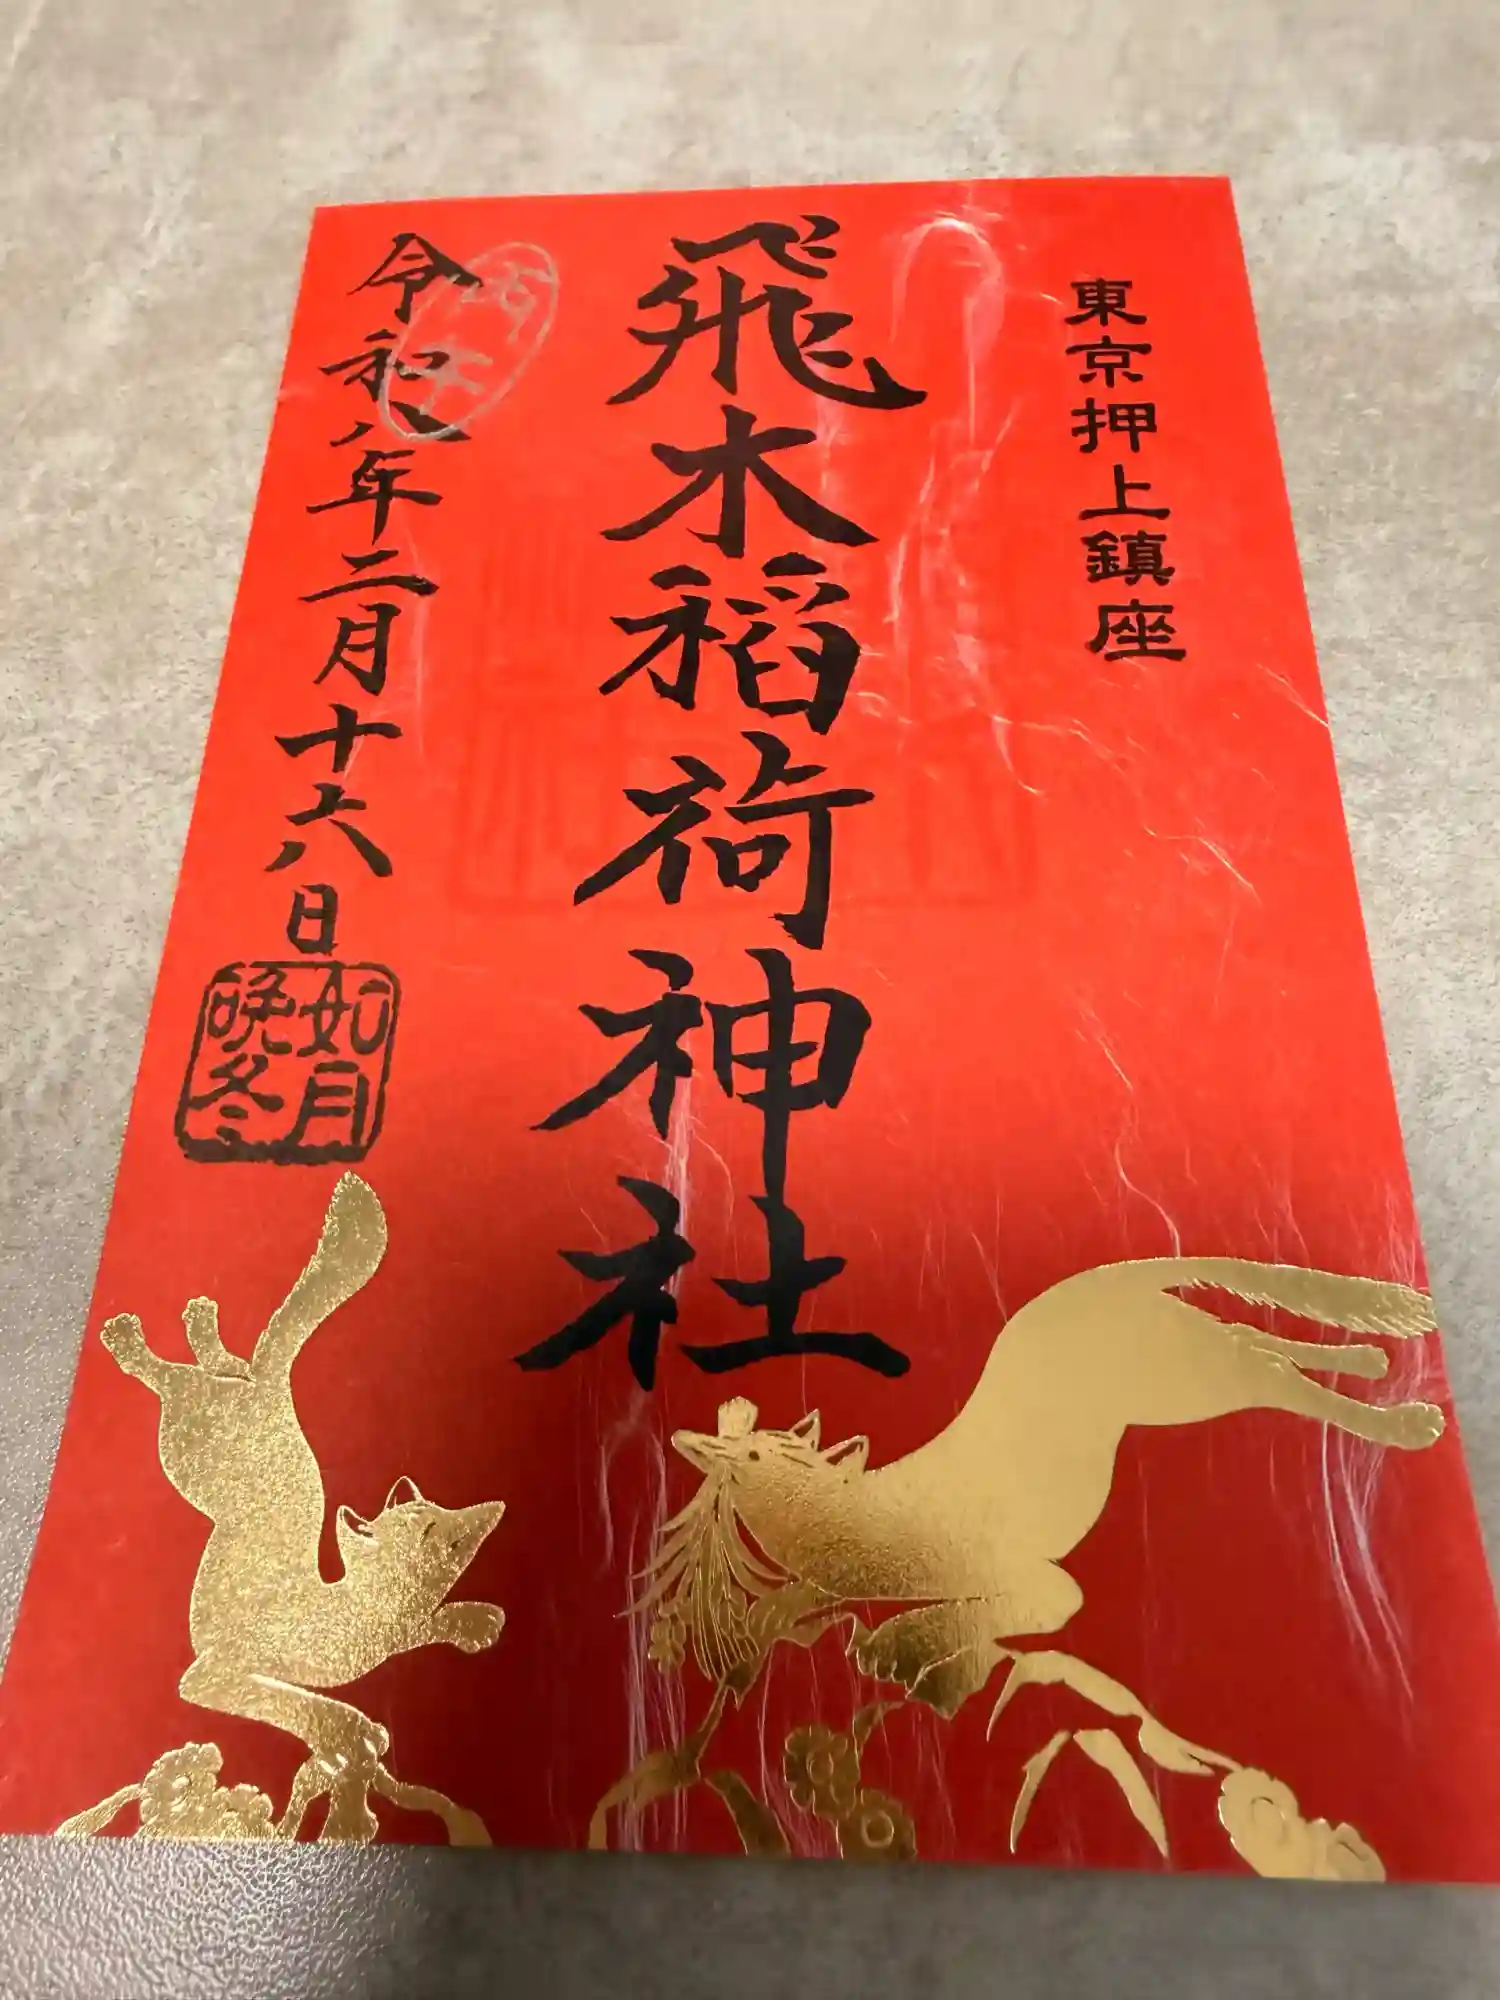 東京押上鎮座
飛木稲荷神社
令和八年二月十六日
丙午
如月
晩冬